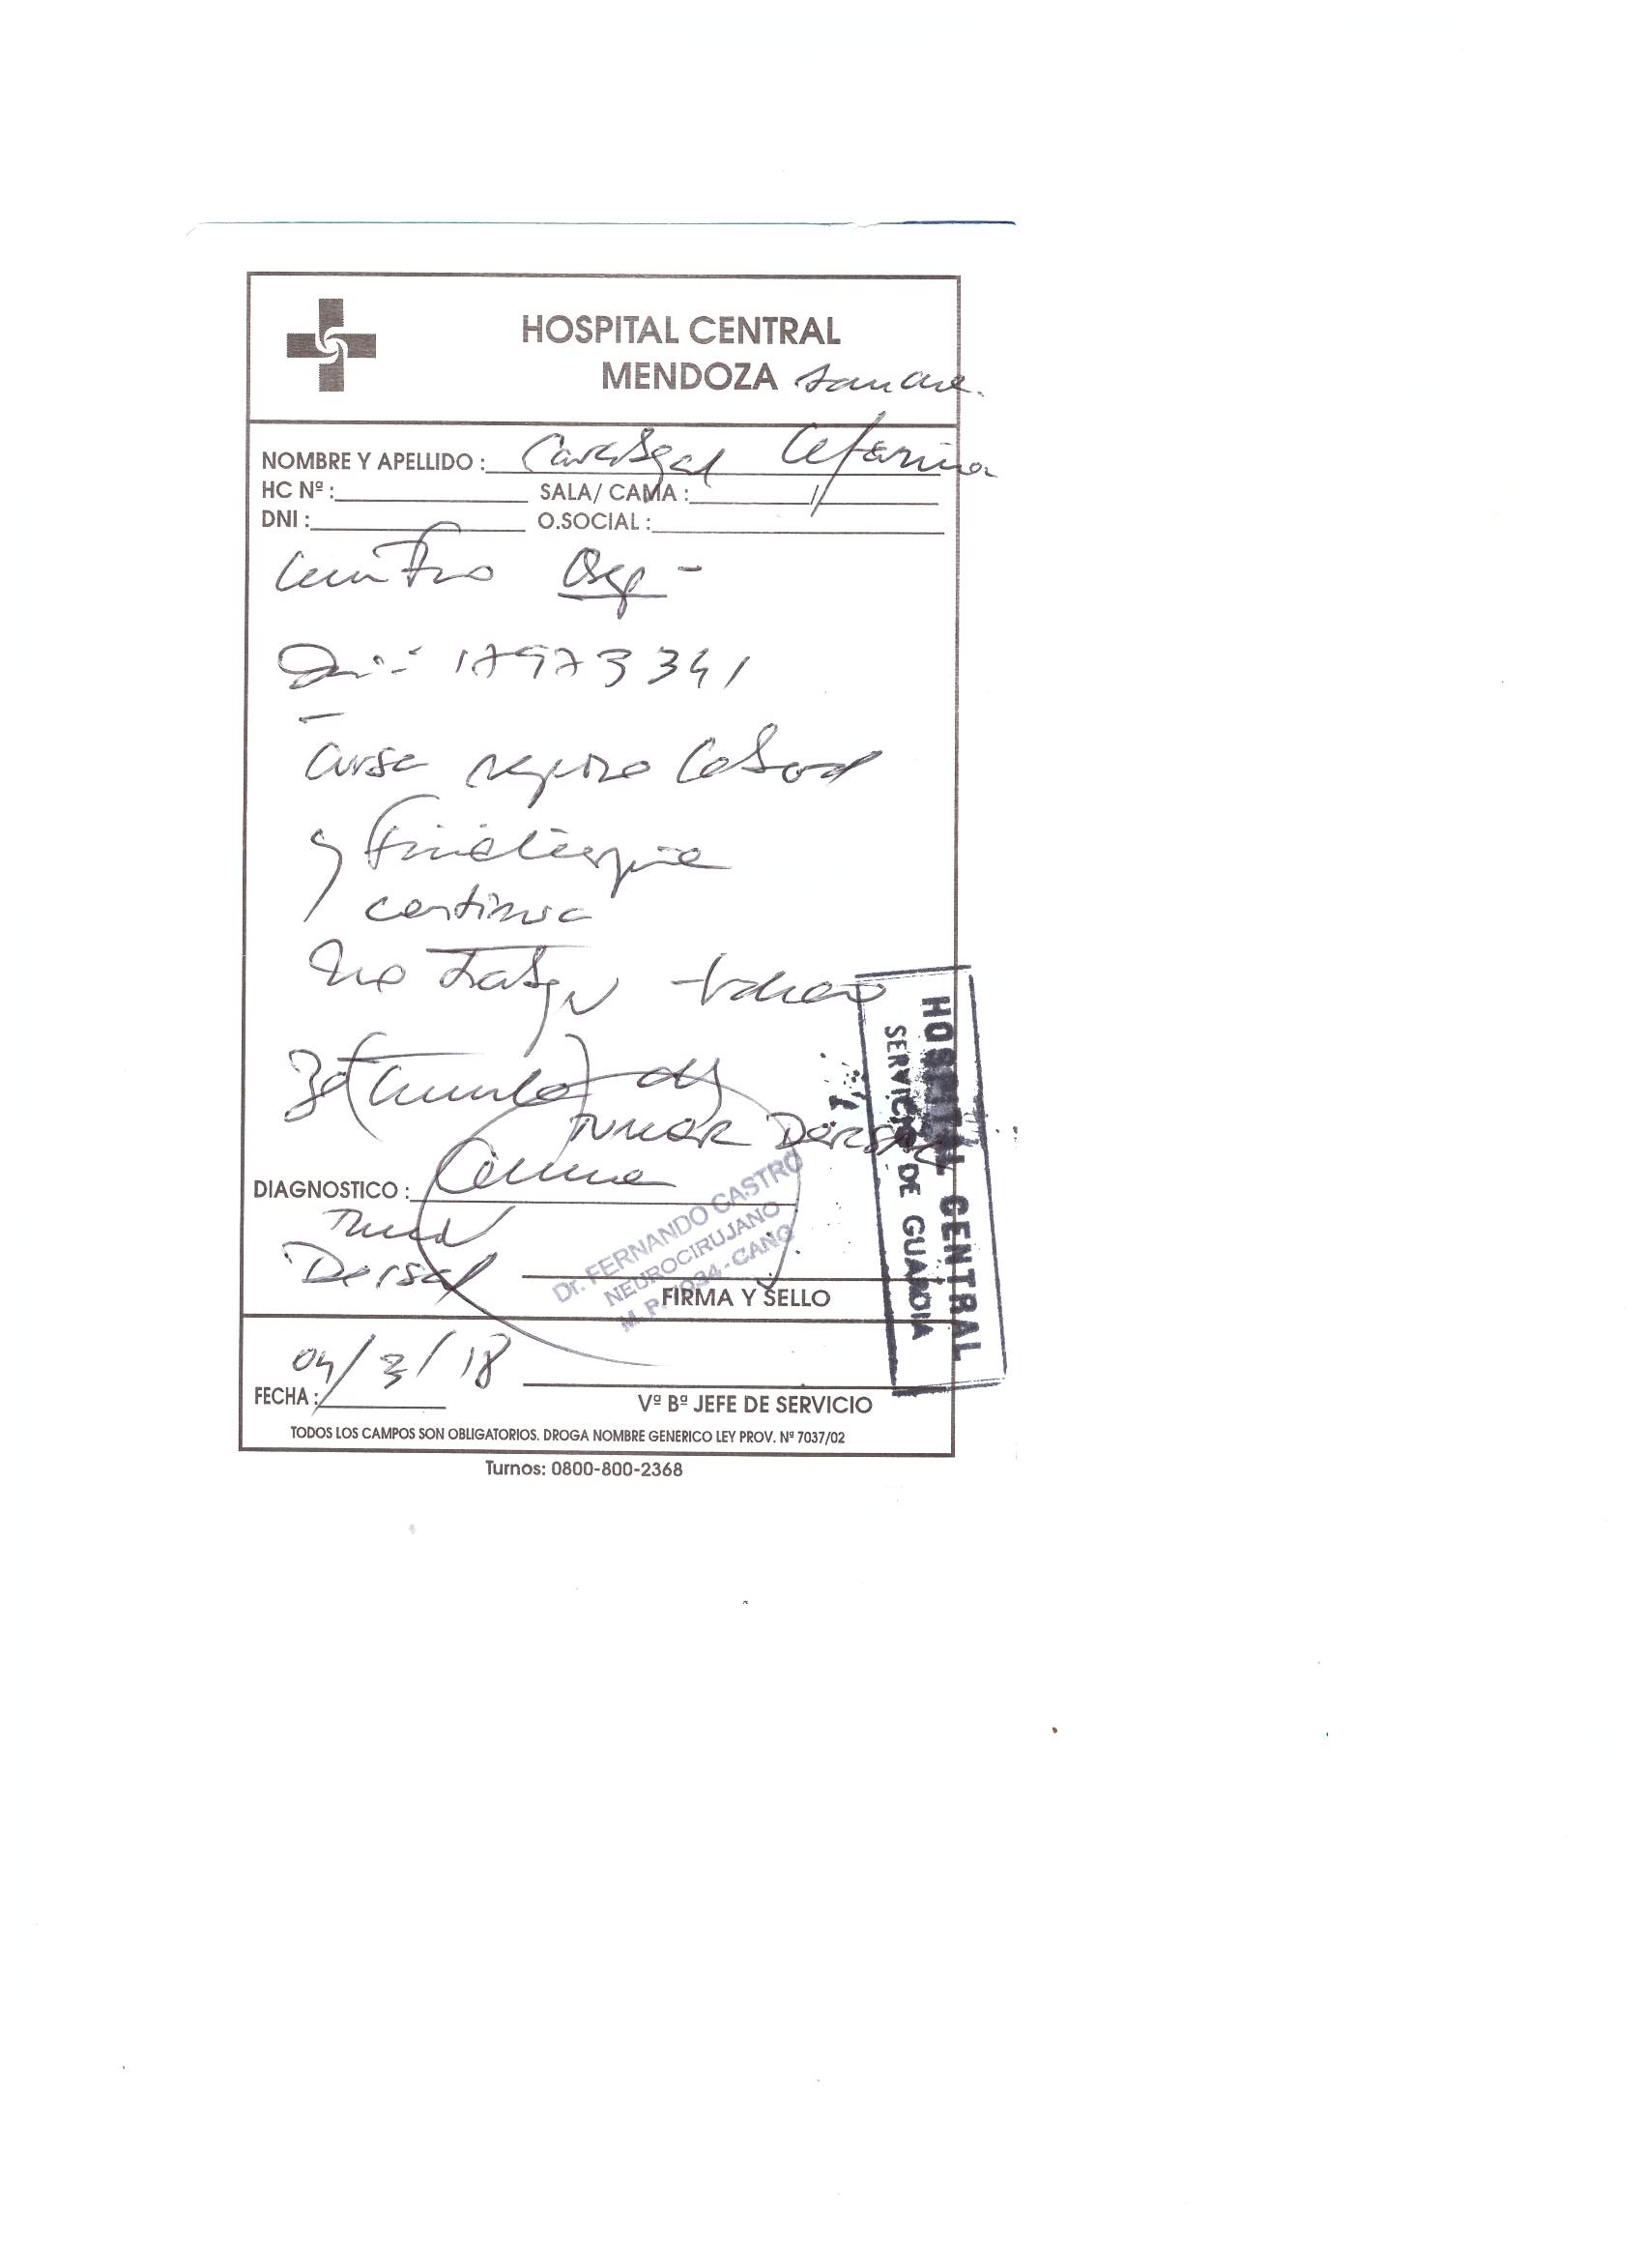 HOSPITAL CENTRAL
MENDOZA
NOMBRE Y APELLIDO : Ceferina
HC Nº : SALA/ CAMA : /
DNI : O.SOCIAL :
Osep -
Dni: 17973341
Cursa reposo laboral
y Fisioterapia
continua
No trabaja
30 (treinta) dias
TUMOR DORSAL
DIAGNOSTICO : Columna
Dorsal
Dr. FERNANDO CASTRO
NEUROCIRUJANO
FIRMA Y SELLO
HOSPITAL CENTRAL
SERVICIO DE GUARDIA
FECHA : 04/3/18
Vº Bº JEFE DE SERVICIO
TODOS LOS CAMPOS SON OBLIGATORIOS. DROGA NOMBRE GENERICO LEY PROV. Nº 7037/02
Turnos: 0800-800-2368